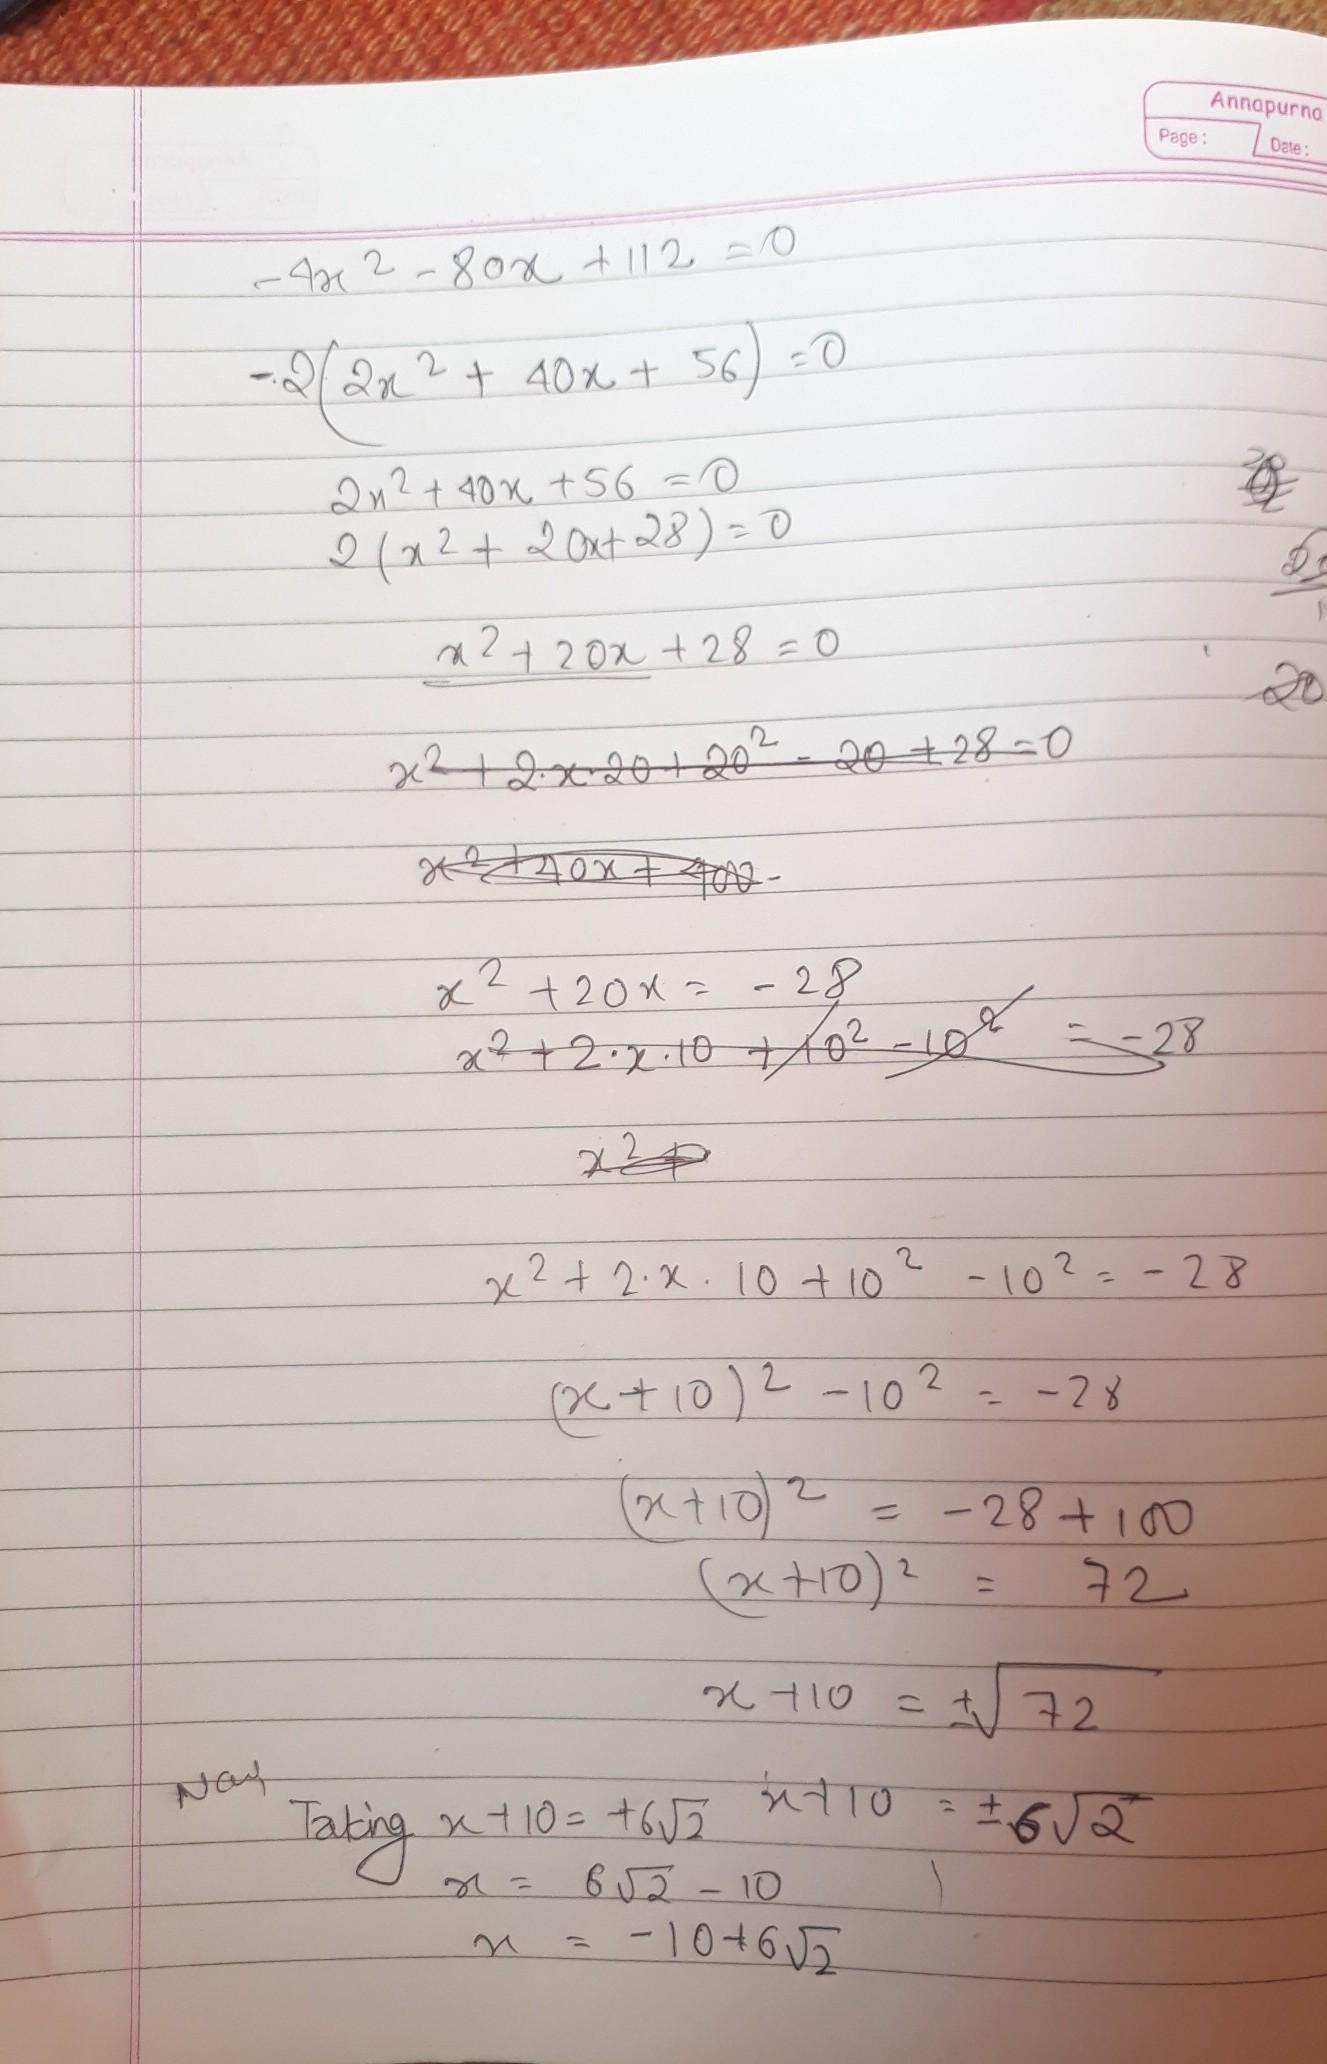 Annapurna
Page: Date:
-4x² - 80x + 112 = 0
-2(2x² + 40x + 56) = 0
2x² + 40x + 56 = 0
2(x² + 20x + 28) = 0
x² + 20x + 28 = 0
20
x² + 2·x·20 + 20² - 20 + 28 = 0
x² + 40x + 400 -
x² + 20x = -28
x² + 2·x·10 + 10² - 10² = -28
x² +
x² + 2·x·10 + 10² - 10² = -28
(x+10)² - 10² = -28
(x+10)² = -28 + 100
(x+10)² = 72
x+10 = ±√72
x+10 = ±6√2
Taking x+10 = +6√2
x = 6√2 - 10
x = -10+6√2